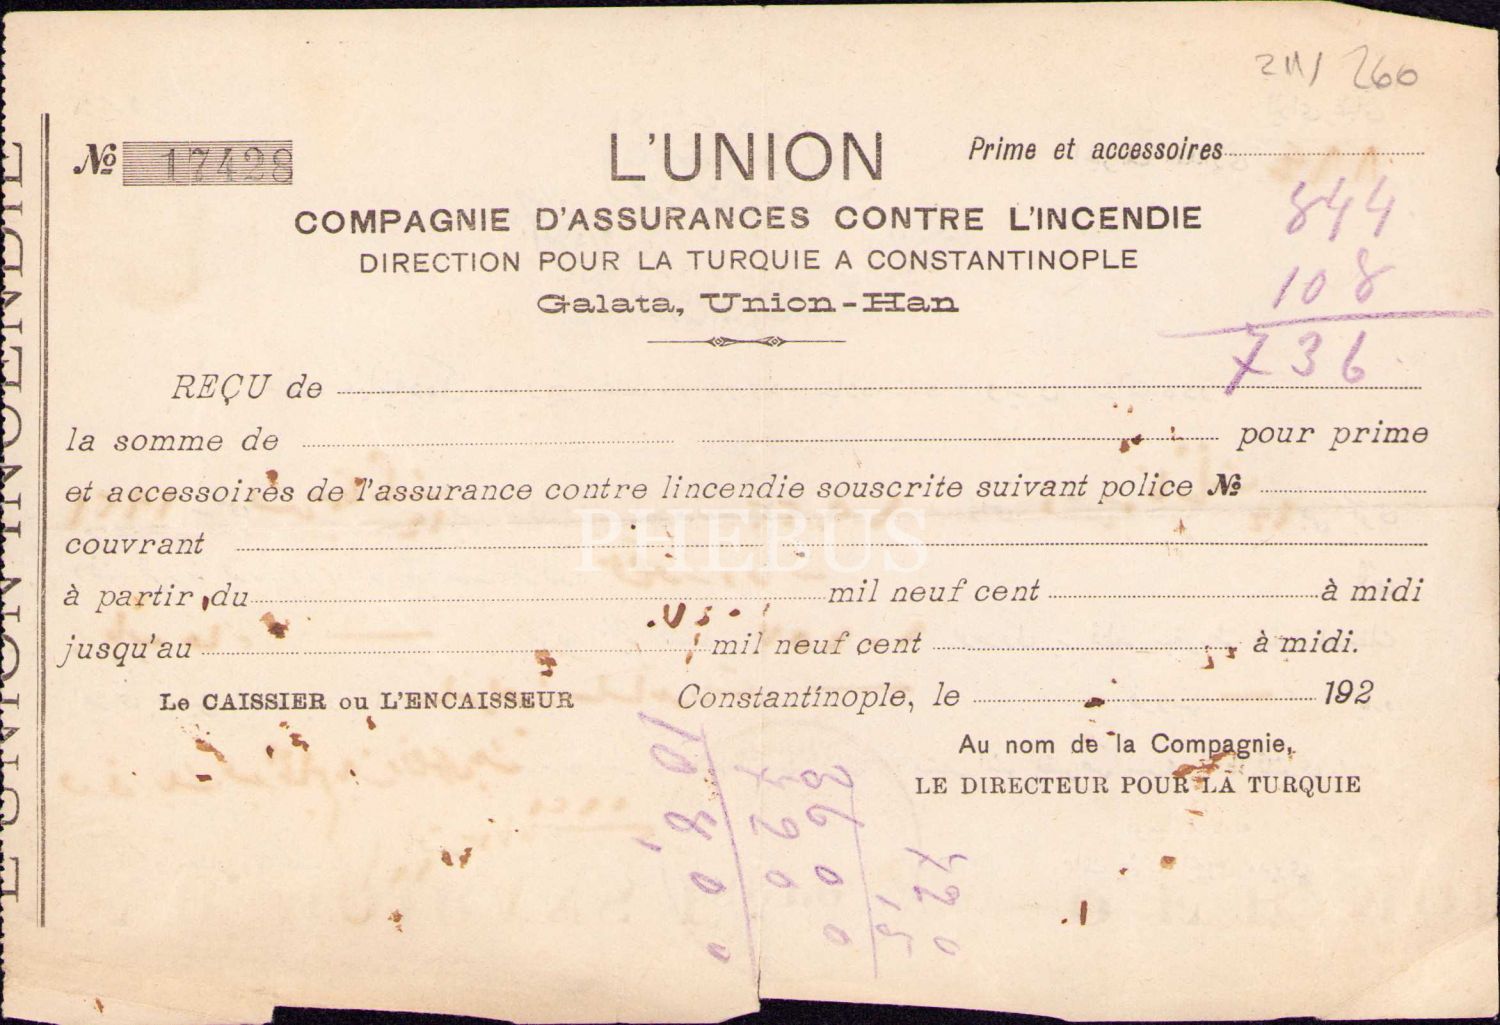 211/ 260
№ 17428
L'UNION
Prime et accessoires
COMPAGNIE D'ASSURANCES CONTRE L'INCENDIE
DIRECTION POUR LA TURQUIE A CONSTANTINOPLE
Galata, Union-Han
844
108
736
REÇU de
la somme de pour prime
et accessoires de l'assurance contre lincendie souscrite suivant police №
PHEBUS
couvrant
à partir du mil neuf cent à midi
jusqu'au mil neuf cent à midi.
Le CAISSIER ou L'ENCAISSEUR
Constantinople, le 192
Au nom de la Compagnie,
LE DIRECTEUR POUR LA TURQUIE
L'UNION INCENDIE